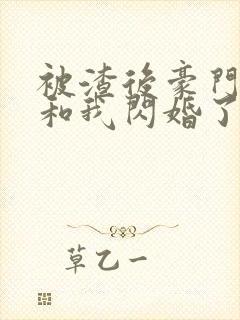 被渣後豪門
和我閃婚了
草乙一